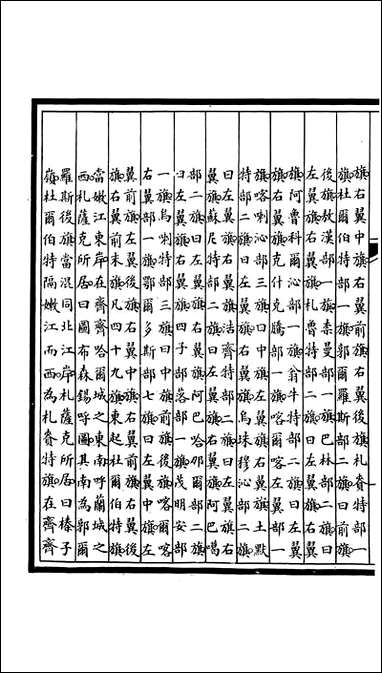 旗右翼中旗右翼前旗右翼後旗札賚特部一
旗杜爾伯特部一旗郭羅斯部二旗曰前旗
後旗敖漢部一旗柰曼部一旗巴林部二旗曰
左翼旗右翼旗札魯特部二旗曰左翼旗右翼
旗阿魯科爾沁部一旗翁牛特部二旗曰左翼
旗右翼旗克什克騰部一旗喀爾喀左翼部一
旗喀喇沁部三旗曰中旗左翼旗右翼旗土默
特部二旗曰左翼旗右翼旗烏珠穆沁部二旗
曰左翼旗右翼旗浩齊特部二旗曰左翼旗右
翼旗蘇尼特部二旗曰左翼旗右翼旗阿巴噶
部二旗曰左翼旗右翼旗阿巴哈那爾部二旗
曰左翼旗右翼旗四子部落部一旗茂明安部
一旗烏喇特部三旗曰中旗前旗後旗喀爾喀
右翼部一旗鄂爾多斯部七旗曰左翼中旗左
翼前旗左翼後旗右翼中旗右翼前旗右翼後
旗右翼前末旗凡四十九旗東起杜爾伯特旗
當嫩江東岸在齊齊哈爾城之東南呼蘭城之
西札薩克所居曰圖布森錫呼圖其南為郭爾
羅斯後旗當混同北江岸札薩克所居曰榛子
嶺杜爾伯特隔嫩江而西為札賚特旗在齊齊